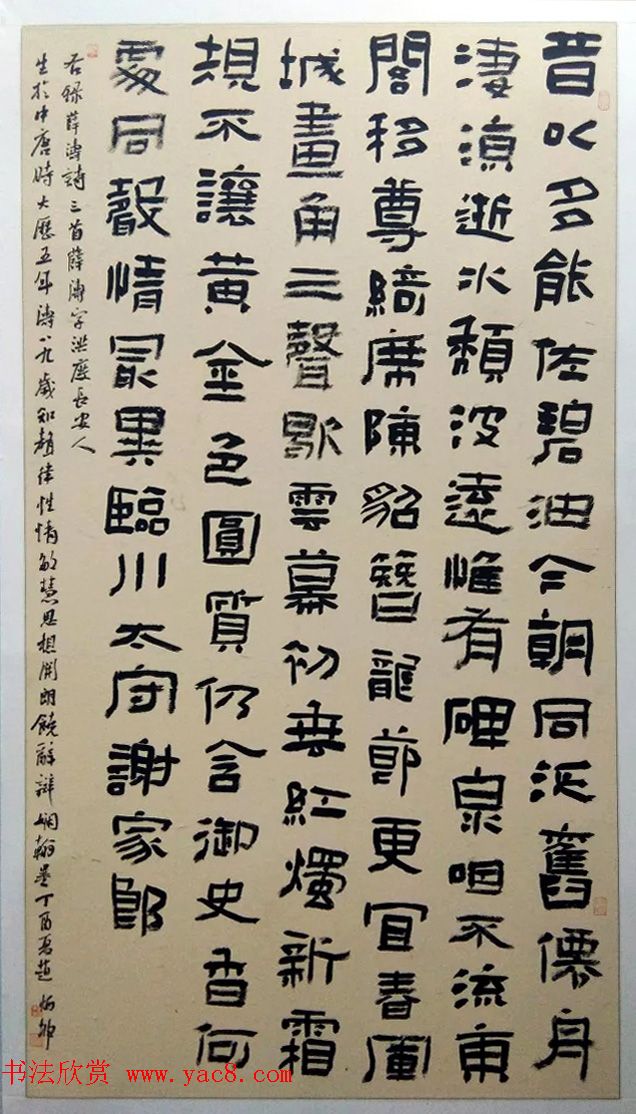 昔以多能佐碧油今朝同泛舊僊舟
淒涼逝水頹波遠惟有碑泉咽不流東
閣移尊綺席陳貂簪龍節更宜春軍
城畫角三聲歇雲幕初垂紅燭新霜
規不讓黃金色圓質仍含御史香何
處同聲情最異臨川太守謝家郎
右録薛濤詩三首薛濤字洪度長安人
生於中唐時大歷五年濤八九歲知律性情敏慧思想開朗饒辭辯嫻翰墨丁酉夏趙
书法欣赏 www.yac8.com